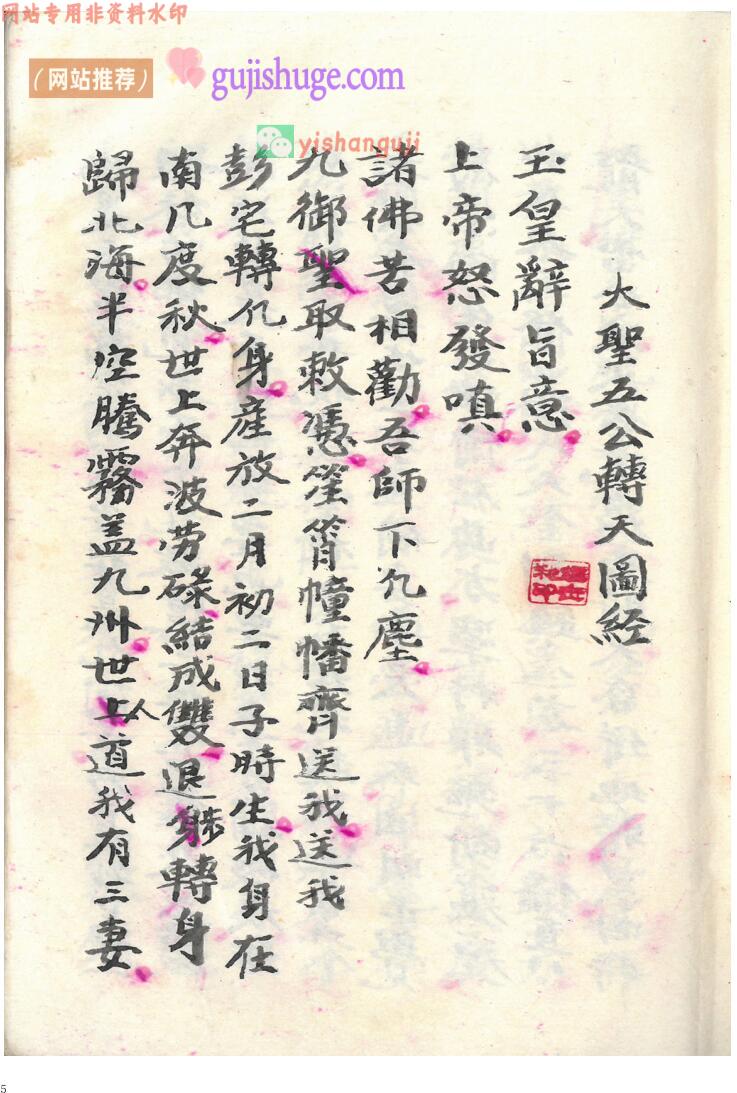 网站专用非资料水印
（网站推荐）
gujishuge.com
yishanguji
大聖五公轉天圖経
玉皇辭旨意
上帝怒發嗔
諸佛苦相勸吾師下凡塵
九御聖取敕憑笙簫幢幡齊送我送我
彭宅轉化身産放二月初二日子時生我身在
南几度秋世上奔波劳碌結成雙退躰轉身
歸北海半空騰霧盖九州世上人道我有三妻
5